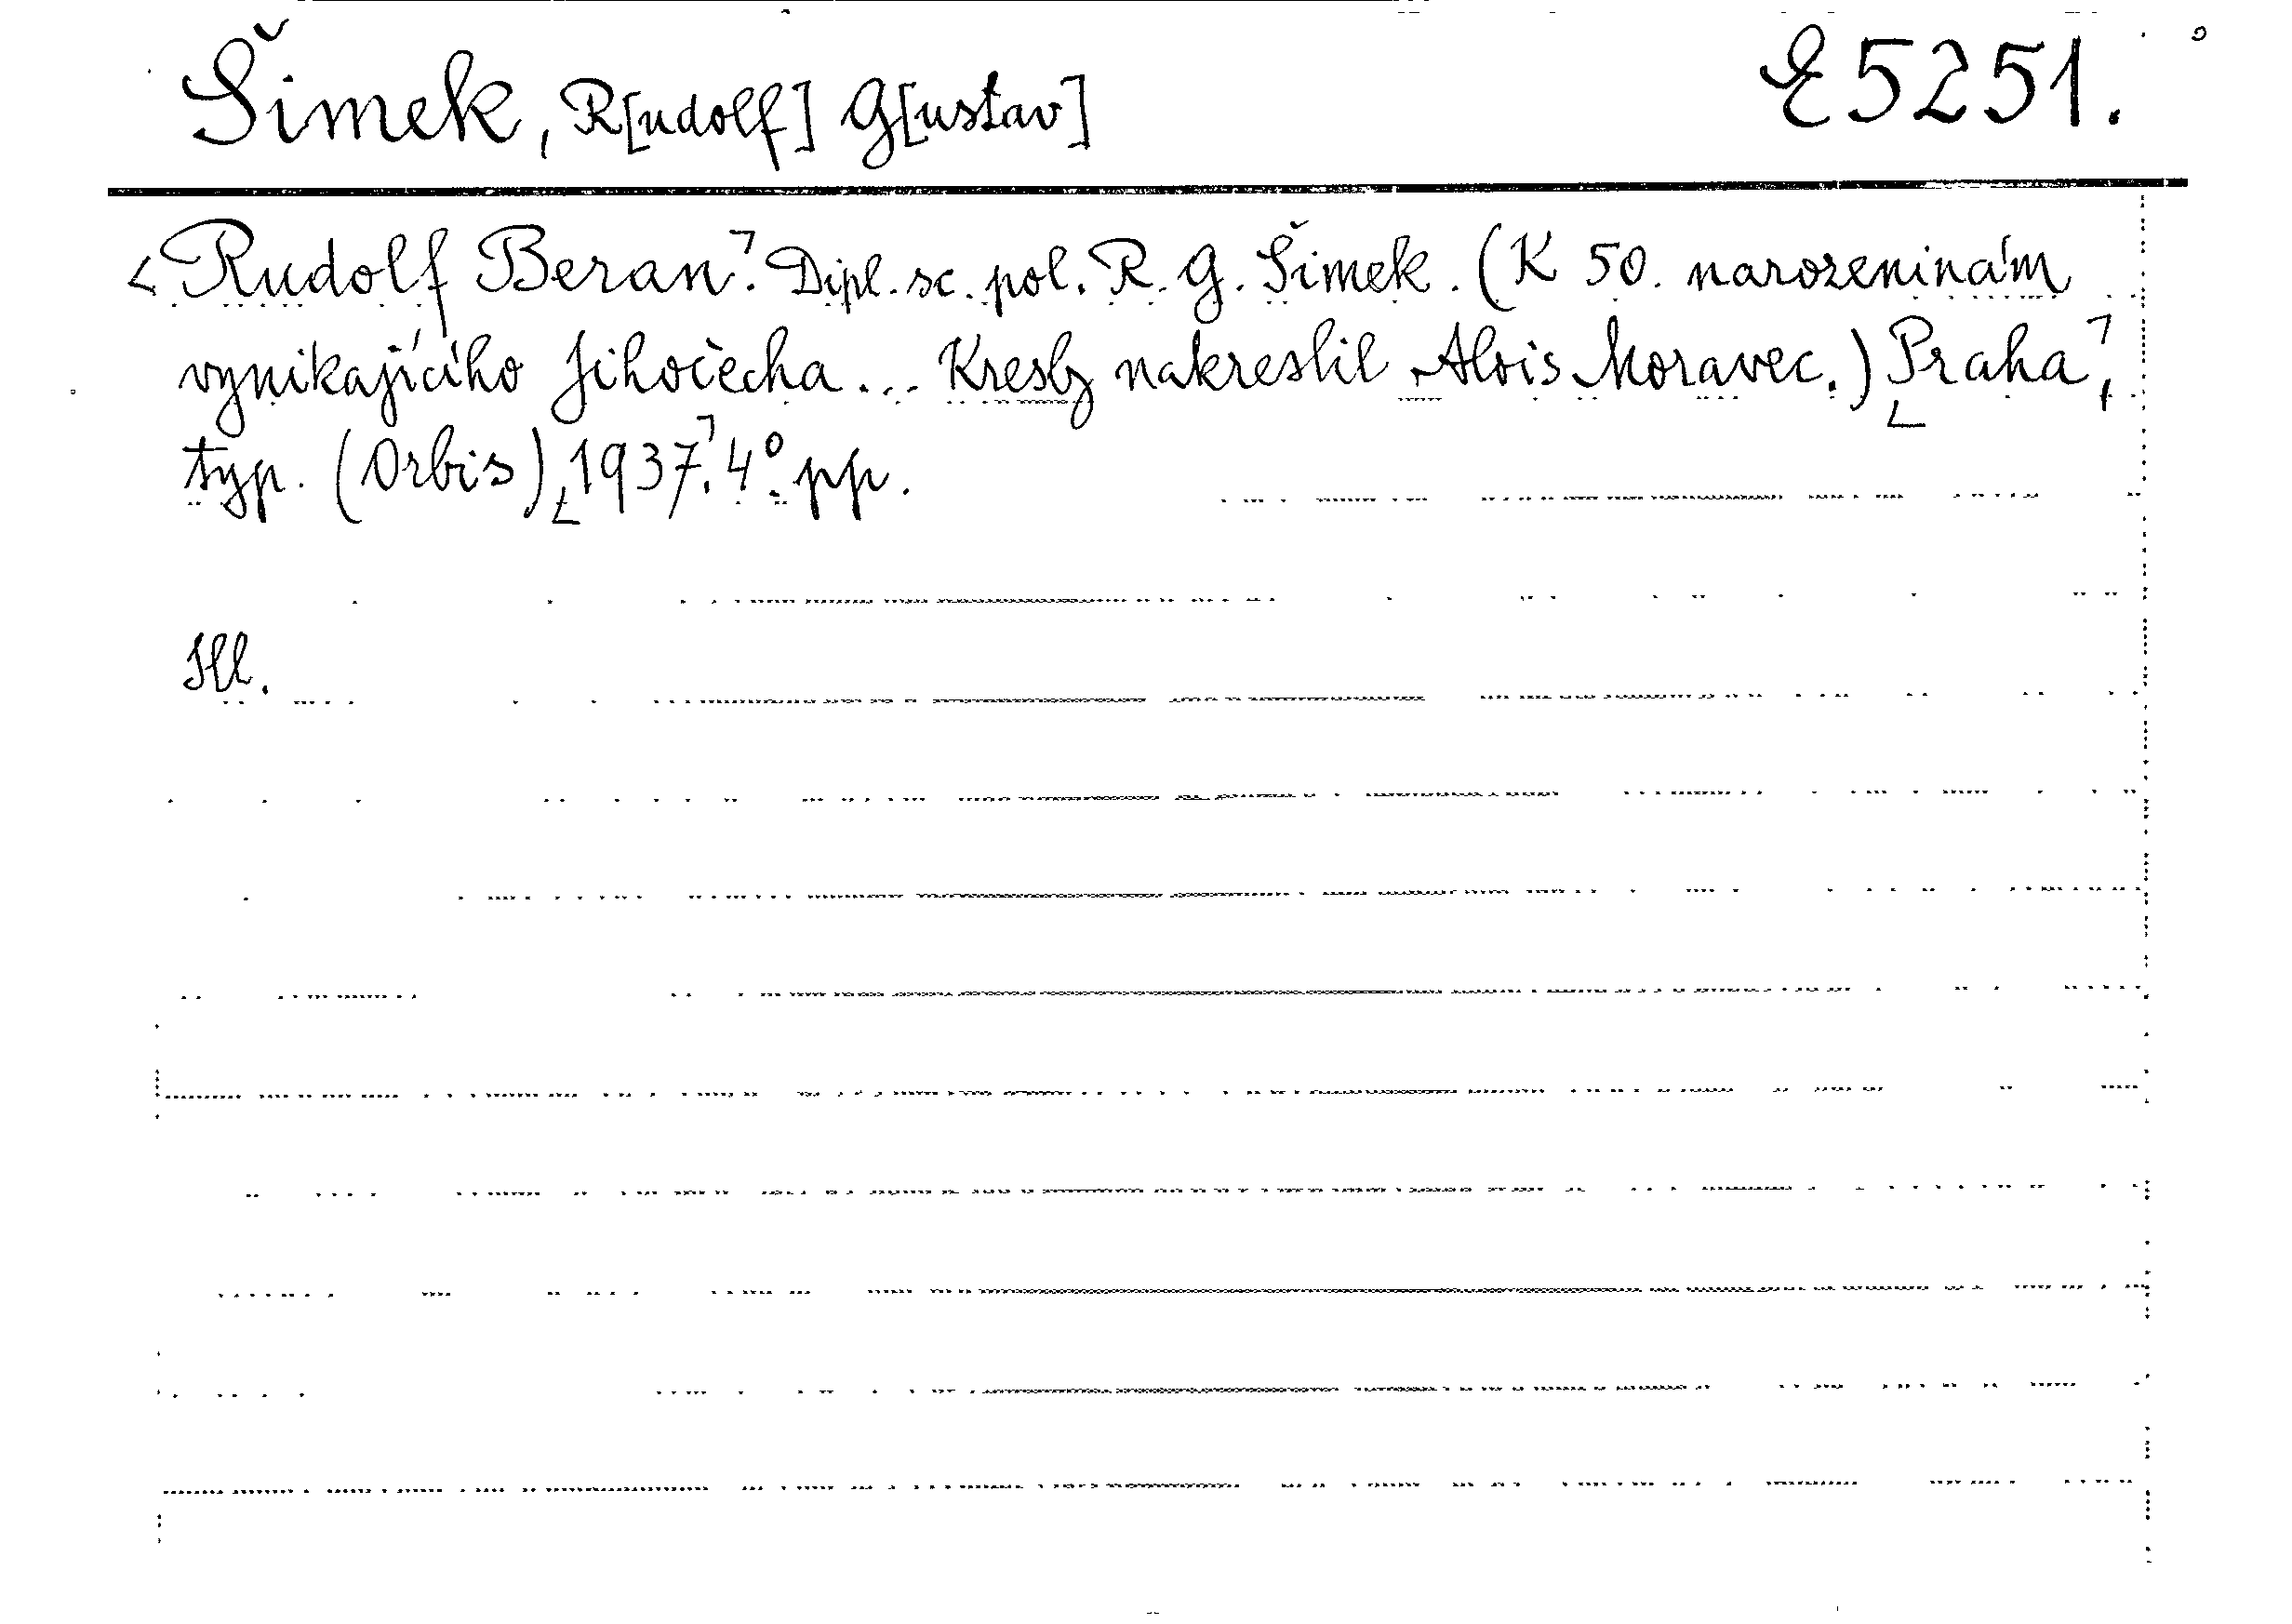 Šimek, R[udolf] G[ustav] E 5251.
Rudolf Beran. Dipl. sc. pol. R. G. Šimek. (K 50. narozeninám
vynikajícího Jihočecha... Kresby nakreslil Alois Moravec.) Praha,
typ. (Orbis), 1937. 4° pp.
Ill.